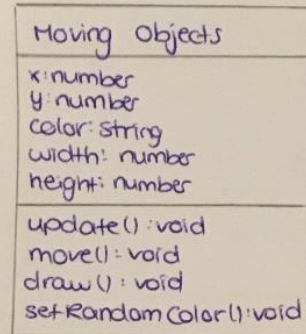 Moving Objects
x: number
y: number
color: string
width: number
height: number
update(): void
move(): void
draw(): void
setRandomColor(): void